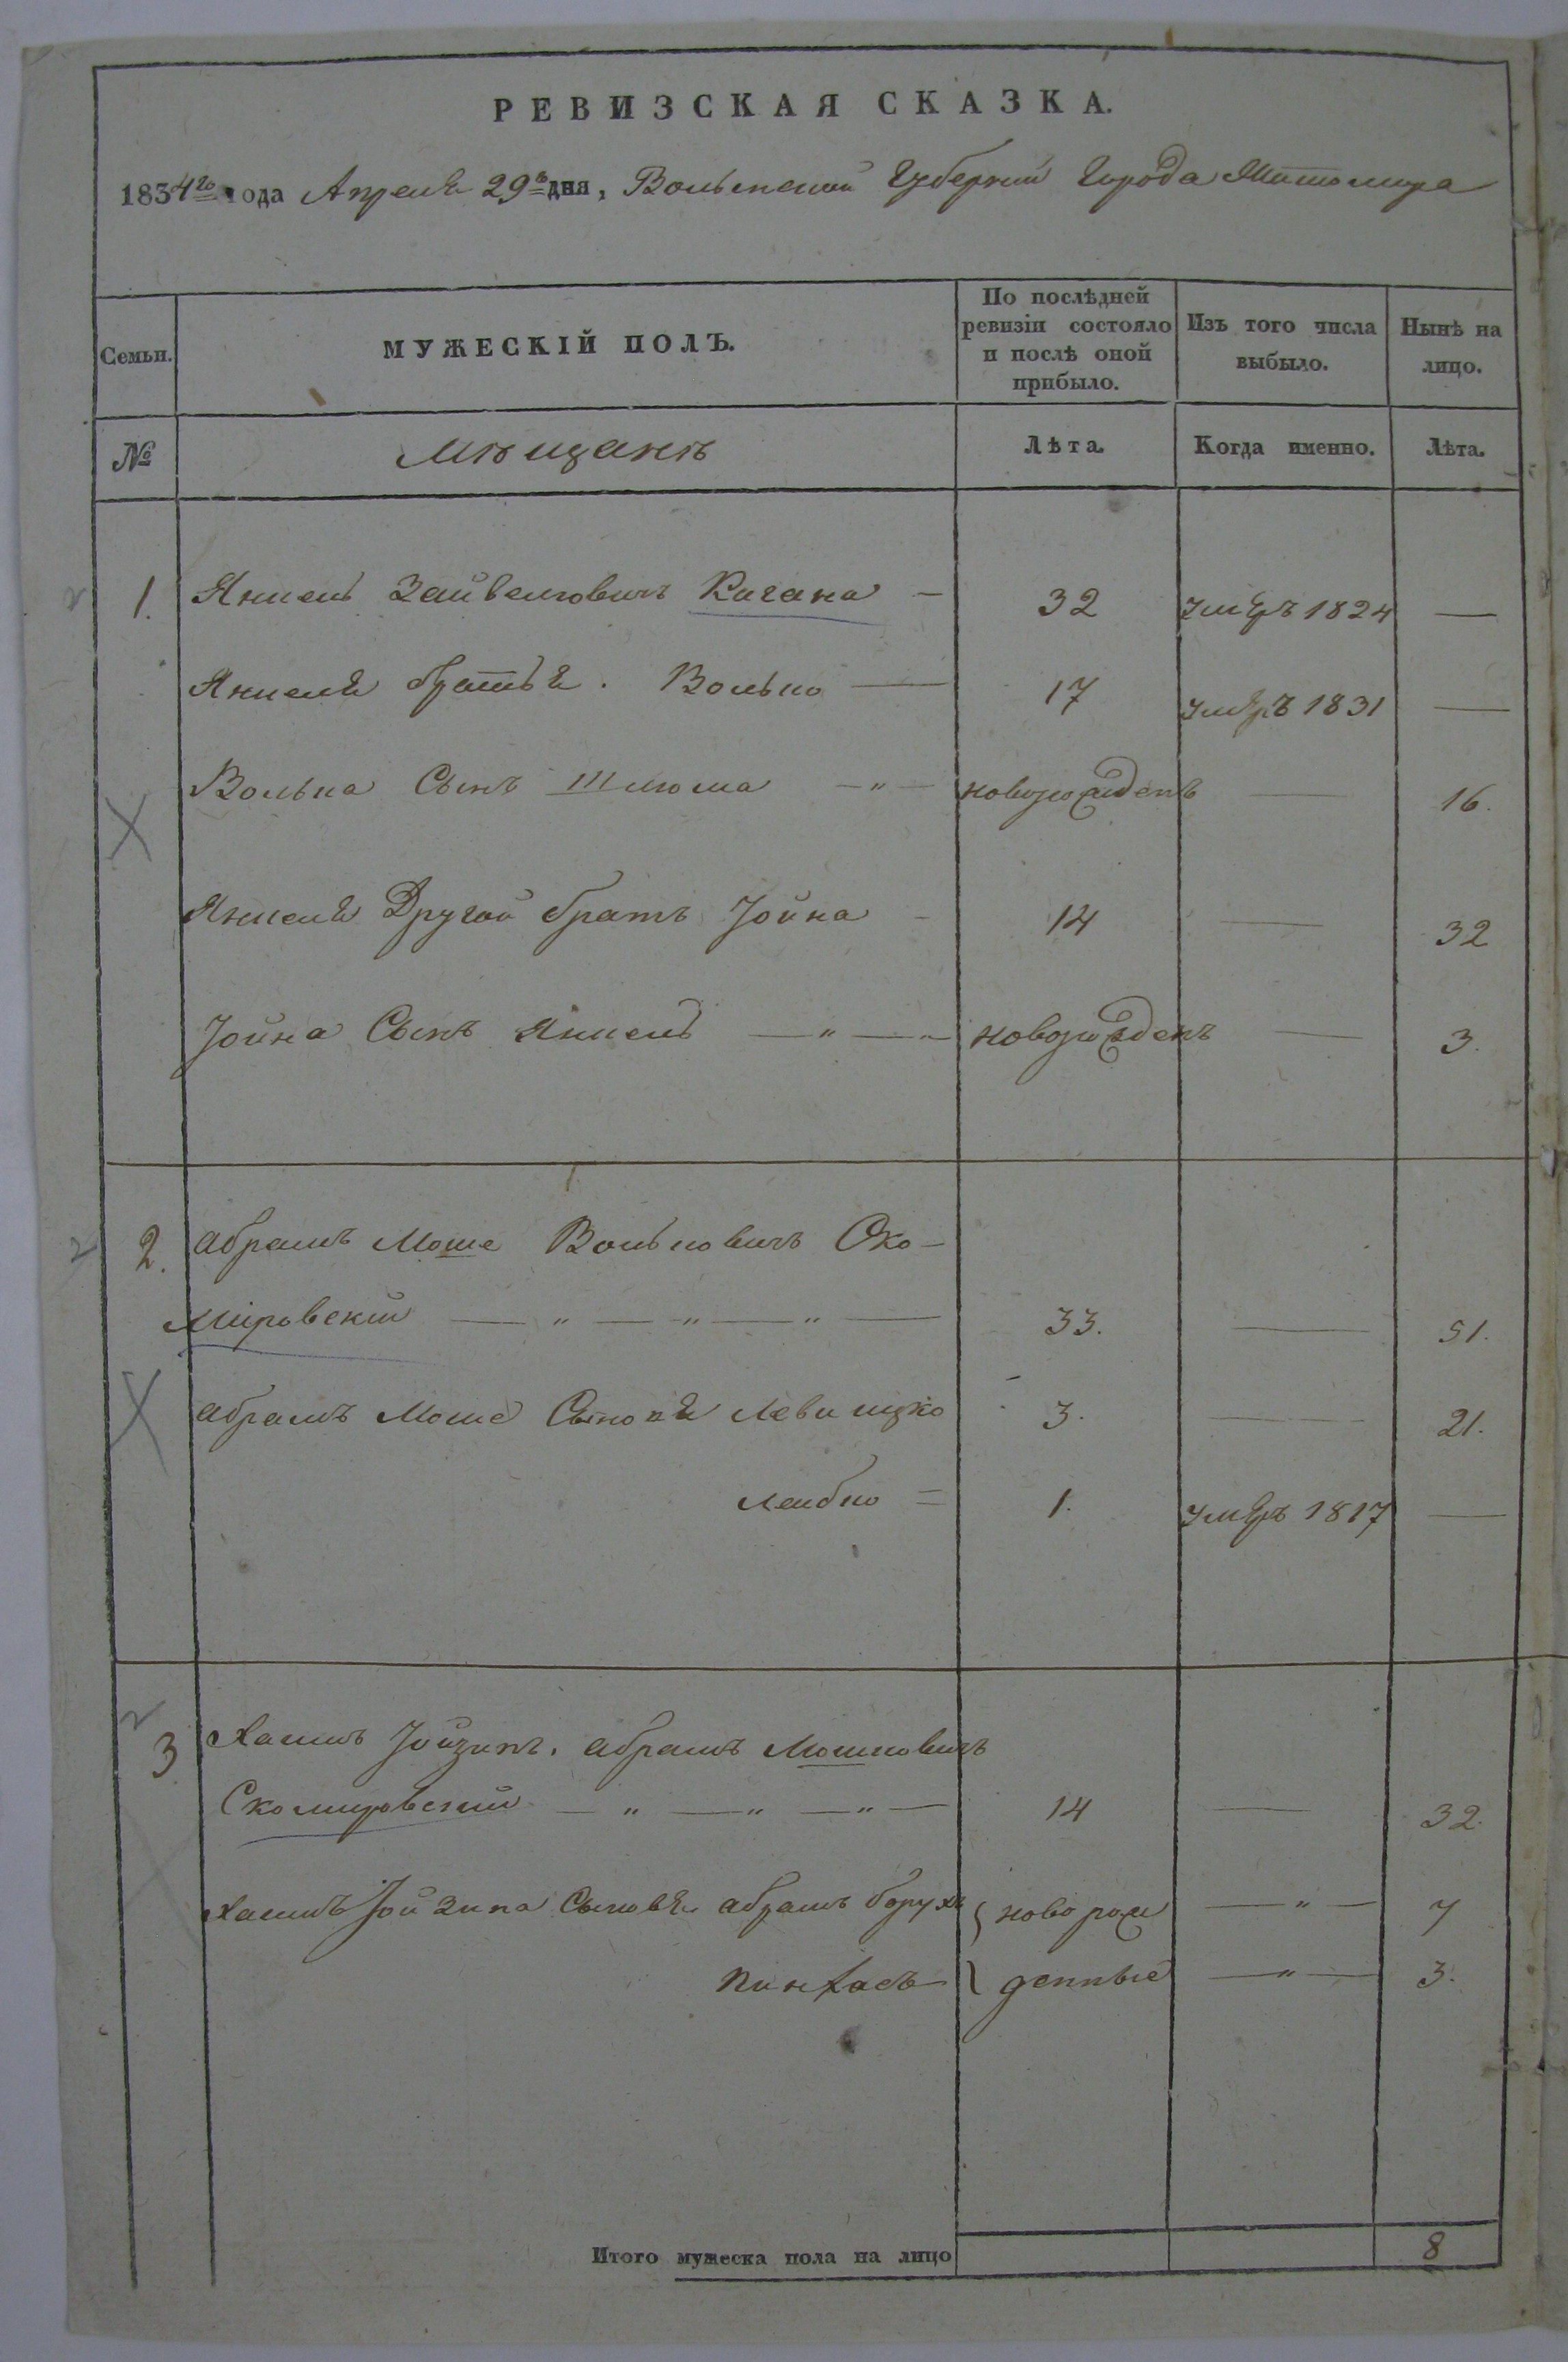 РЕВИЗСКАЯ СКАЗКА.
1834го года Апреля 29ъ дня, Волынской Губернии Города Житомира
Семьи. МУЖЕСКІЙ ПОЛЪ. По послѣдней ревизіи состояло и послѣ оной прибыло. Изъ того числа выбыло. Нынѣ на лицо.
№ Мѣщанъ Лѣта. Когда именно. Лѣта.
1. Янкель Зайвелювичъ Кагана — 32 умѣръ 1824 —
Янкеля братья. Волько — 17 умѣръ 1831 —
Волька Сынъ Шлюма — " — новорожденъ — 16.
Янкеля Другой братъ Іойна — 14 — 32
Іойна Сынъ Янкель — " — " новорожденъ — 3.
2. Абрамъ Моше Вольковичъ Ско-
мировский — " — " — " — 33. — 51.
Абрамъ Моше Сыновья Леви ицко 3. — 21.
Лейбко = 1. умѣръ 1817 —
3 Хаимъ Іойзипъ. Абрамъ Мошковичъ
Скомировский — " — " — " — 14 — 32.
Хаимъ Іойзипа Сыновья Абрамъ Борухъ } новорож — " — 7
Пинхасъ } денные — " — 3.
Итого мужеска пола на лицо 8